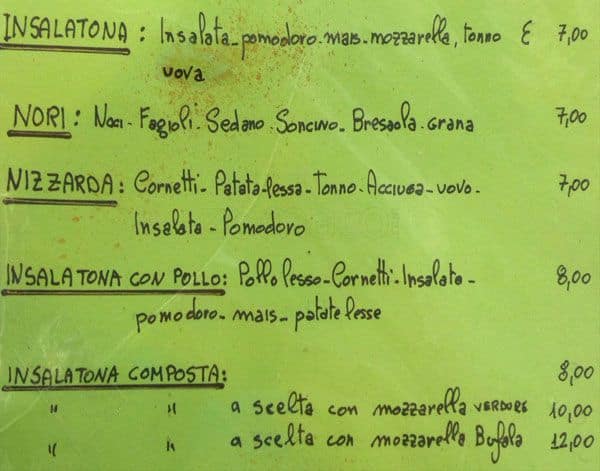 INSALATONA : Insalata-pomodoro-mais-mozzarella, tonno € 7,00
uova
NORI : Noci-Fagioli-Sedano-Soncino-Bresaola-Grana 7,00
NIZZARDA : Cornetti-Patata-lessa-Tonno-Acciuga-uovo- 7,00
Insalata - Pomodoro
INSALATONA CON POLLO: Pollo lesso-Cornetti-Insalata- 8,00
pomodoro-mais-patate lesse
INSALATONA COMPOSTA: 8,00
" " a scelta con mozzarella VERDURE 10,00
" " a scelta con mozzarella Bufala 12,00